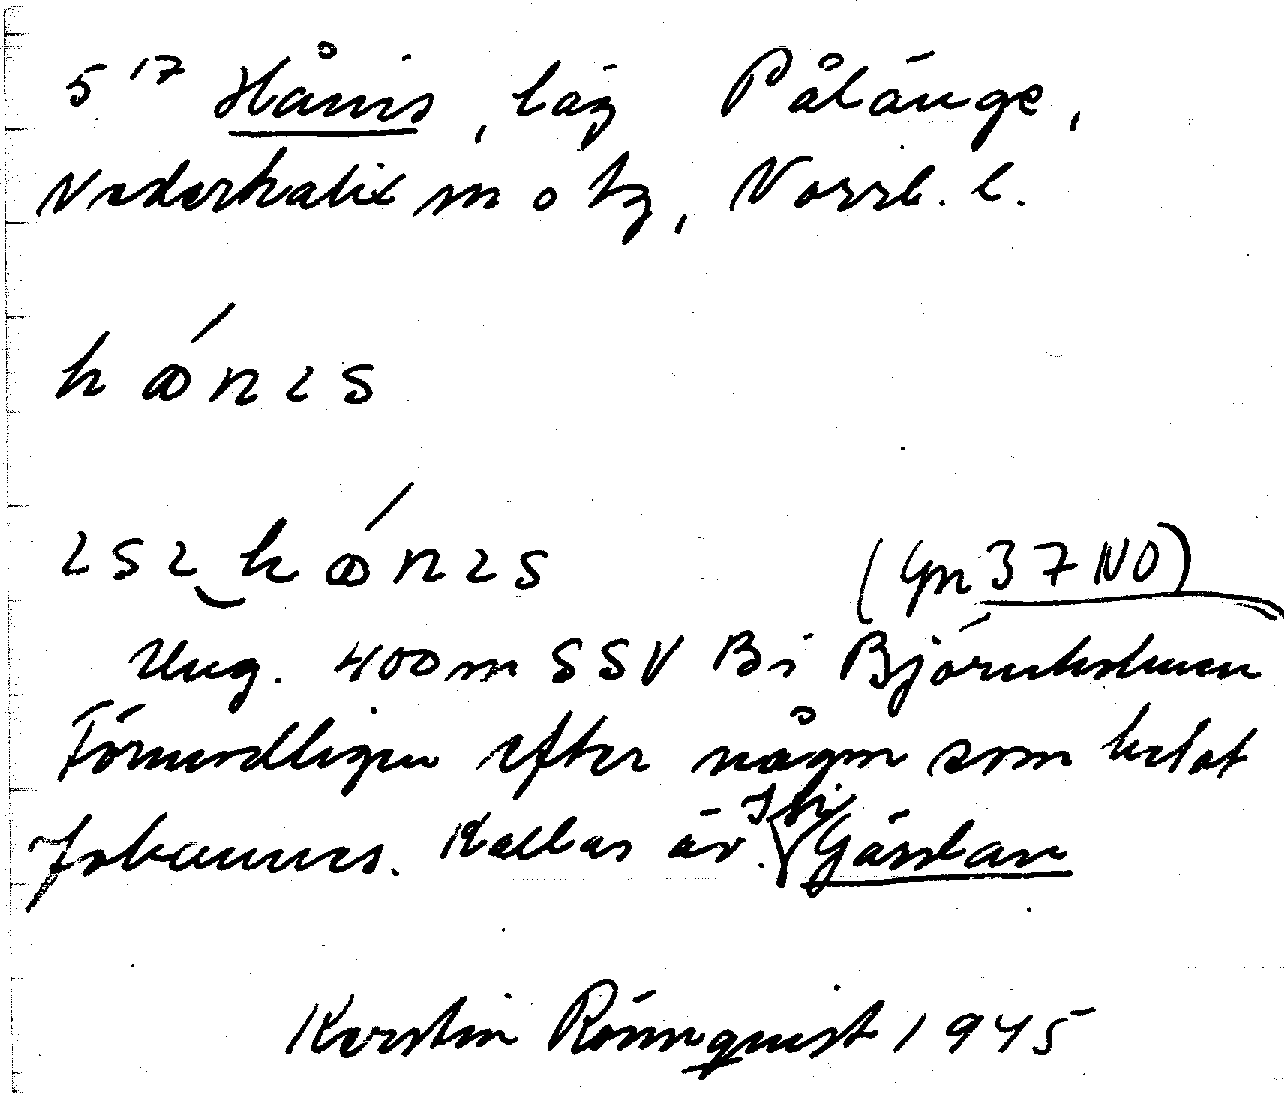 5 17 Hånis, läg Pålänge,
Nederkalix sn o tg, Norrb. l.
hǿnɩs
ɩsɩ‿hǿnɩs (Gn 37 NO)
Ung. 400 m SSV Bi Björnholmen
Förmodligen efter någon som hetat
Johannes. Kallas äv. Gässlan
Kerstin Rönnquist 1945